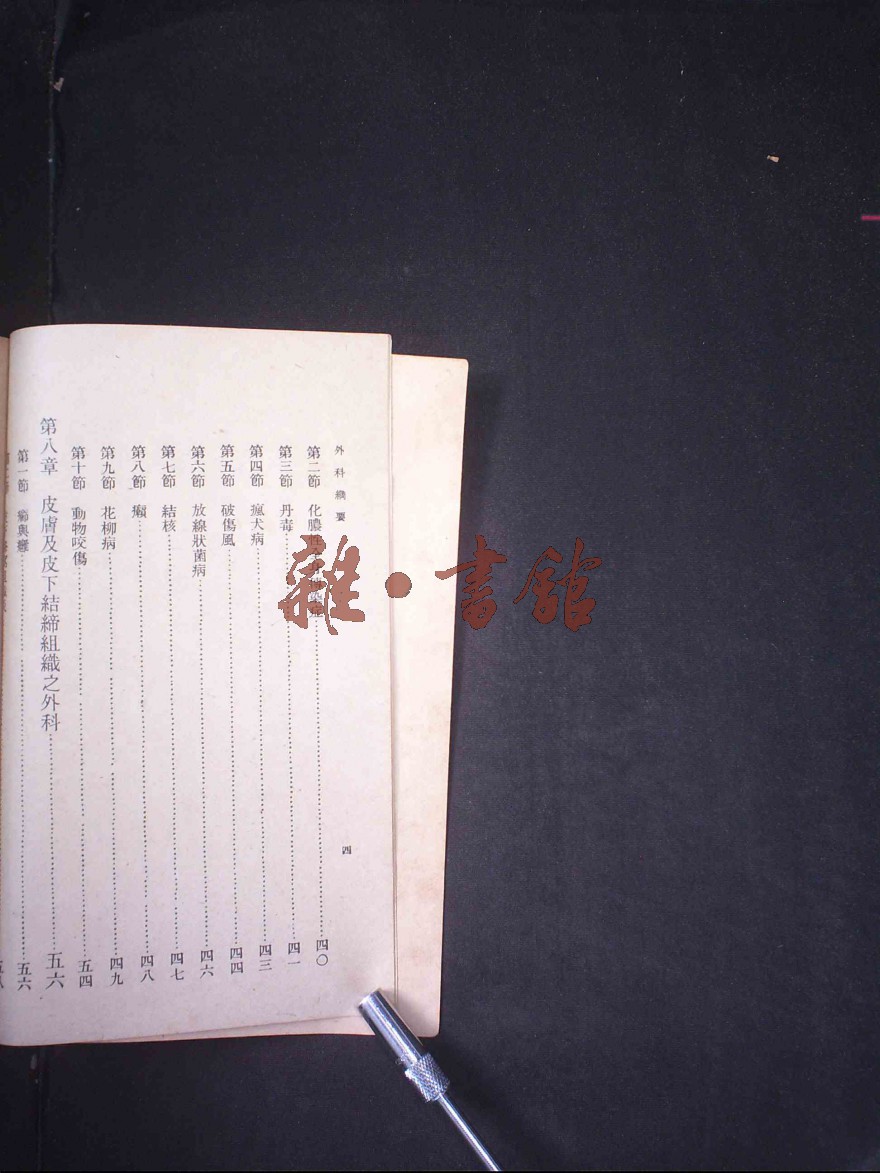 外科纖要
四
第二節 化膿性全身傳染症……四〇
第三節 丹毒……四一
第四節 瘋犬病……四三
第五節 破傷風……四四
第六節 放線狀菌病……四六
第七節 結核……四七
第八節 癩……四八
第九節 花柳病……四九
第十節 動物咬傷……五四
第八章 皮膚及皮下結締組織之外科……五六
第一節 ……五六
雜·書館